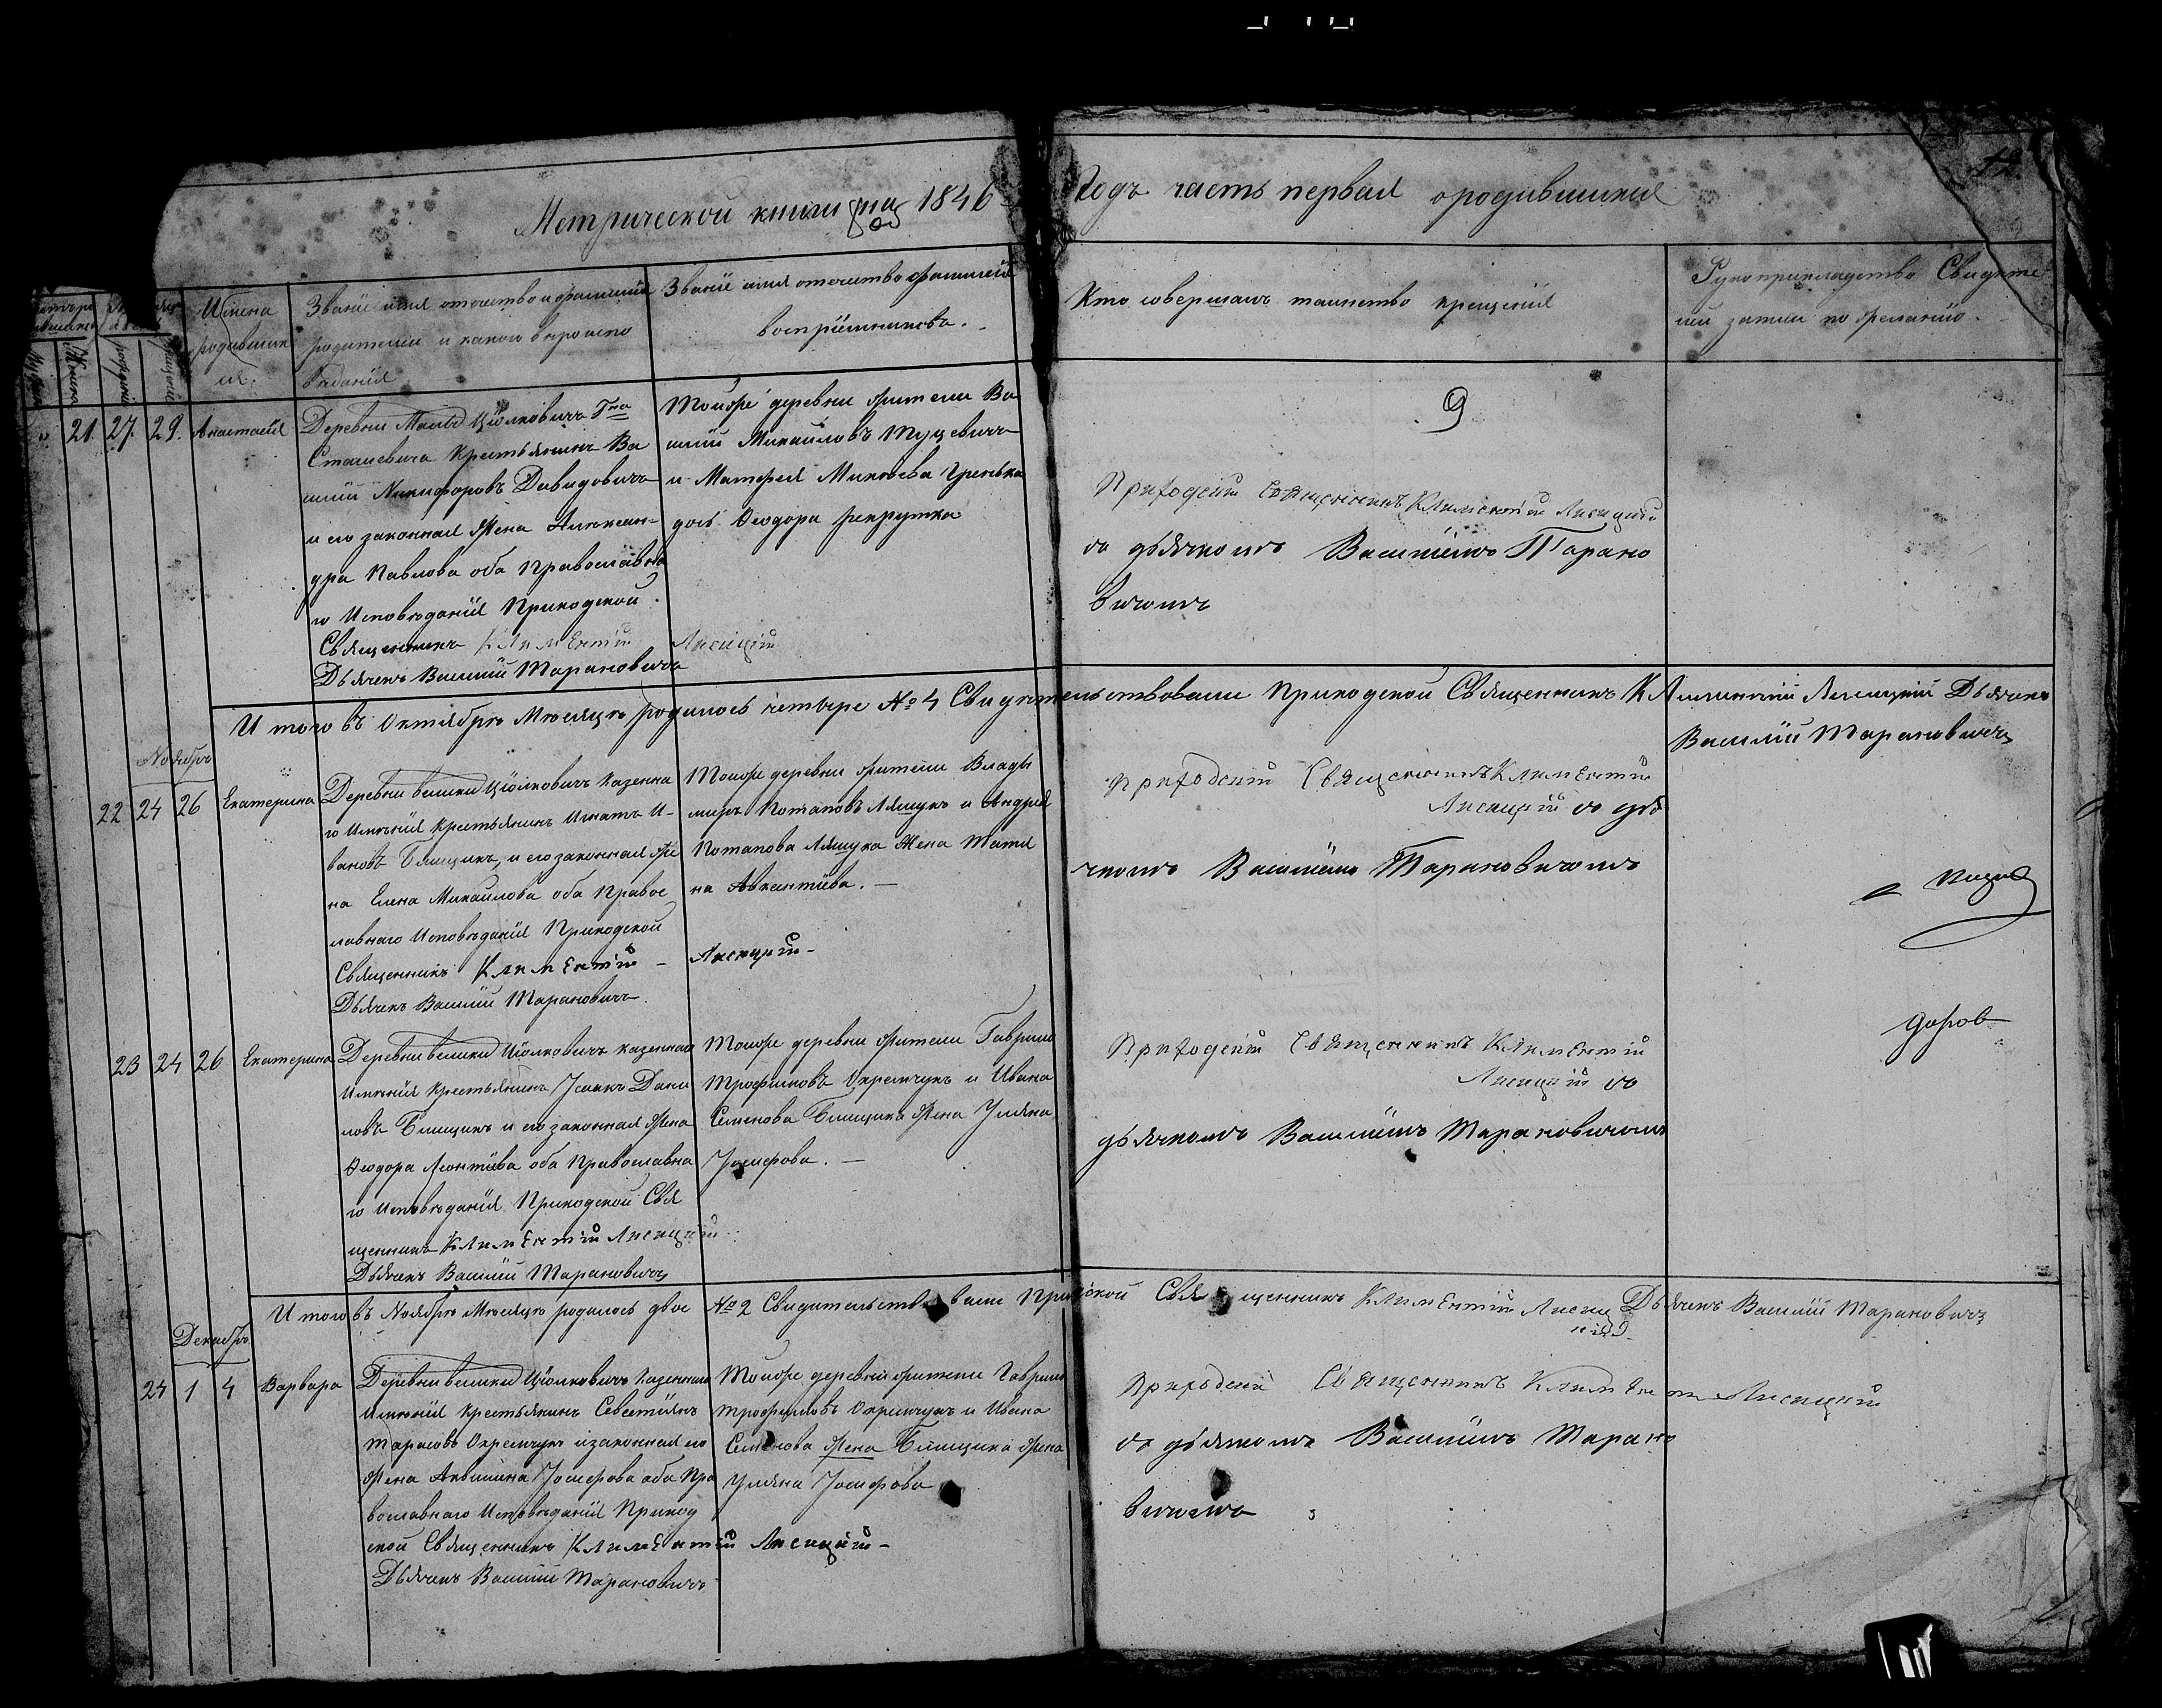 42.
Метрической книги на 1846 Годъ часть первая ородившихся
Имена
родивших
ся.
Званіе имя отечество и фамилія
родителей и какого вѣроиспо
вѣданія
Званіе имя отечество фамилія
воспріемниковъ.
Кто совершалъ таинство крещенія
Рукоприкладство Свидѣте
лей записи по желанію.
21. 27. 29. Анастасія
Деревни Малыя Ціолковичь Гна
крестьянинъ Ва
силій Никифоровъ Давидовичъ
и его законная Жена Алексан-
дра Павлова оба Православна
го Исповѣданія Приходской
Священникъ Климентій Лисицкій
Дьячекъ Василій Тарановичъ
Тойже деревни жители Ва
силій Михайловъ
и Матфея
Феодора
9
Приходскій Священникъ Климентій Лисицкій
со дьячкомъ Василіемъ Тарано
вичомъ
И того въ Октябрѣ Мѣсяцѣ родилось четыре № 4 Свидѣтельствовали Приходской Священникъ Климентій Лисицкій Дьячекъ
Василій Тарановичъ
Ноябрь
22 24 26 Екатерина
Деревни великихъ Ціолковичъ казенна
го Имѣнія крестьянинъ Игнатъ И-
вановъ Блищикъ, и его законная Же
на Елена Михайлова оба Правос
лавнаго Исповѣданія Приходской
Священникъ Климентій - Лисицкій -
Дьячекъ Василій Тарановичъ.
Тойже деревни жители Влади
миръ Потаповъ Ляшукъ и Андрея
Потапова Ляшука Жена Татья
на Авксентіева. -
Приходскій Священникъ Климентій
Лисицкій со дья
чкомъ Василіемъ Тарановичомъ
23 24 26 Екатерина
Деревни великихъ Ціолковичъ казеннаго
Имѣнія крестьянинъ Исаакъ Дани
ловъ Блищикъ и его законная Жена
Феодора Леонтіева оба Православна
го Исповѣданія Приходской Свя
щенникъ Климентій Лисицкій
Дьячекъ Василій Тарановичъ
Тойже деревни жители Гаврило
Трофимовъ Охремчукъ и Ивана
Семенова Блищика Жена Уляна
Іосифова. -
Приходскій Священникъ Климентій
Лисицкій со
дьячкомъ Василіемъ Тарановичомъ
И того въ Ноябрѣ Мѣсяцѣ родилось двое № 2 Свидѣтельствовали Приходской Священникъ Климентій Лисицкій Дьячекъ Василій Тарановичъ
Декабрь
24 1 4 Варвара
Деревни великихъ Ціолковичъ казеннаго
Имѣнія крестьянинъ Севестіянъ
Тарасовъ Охремчукъ изаконная его
Жена Акилина Іосифова оба Пра
вославнаго Исповѣданія Приход
ской Священникъ Климентій Лисицкій -
Дьячекъ Василій Тарановичъ
Тойже деревни жители Гаврило
Трофимовъ Охремчукъ и Ивана
Семенова Жена Блищика Жена
Уляна Іосифова
Приходскій Священникъ Климентій Лисицкій
со дьячкомъ Василіемъ Тарано
вичомъ